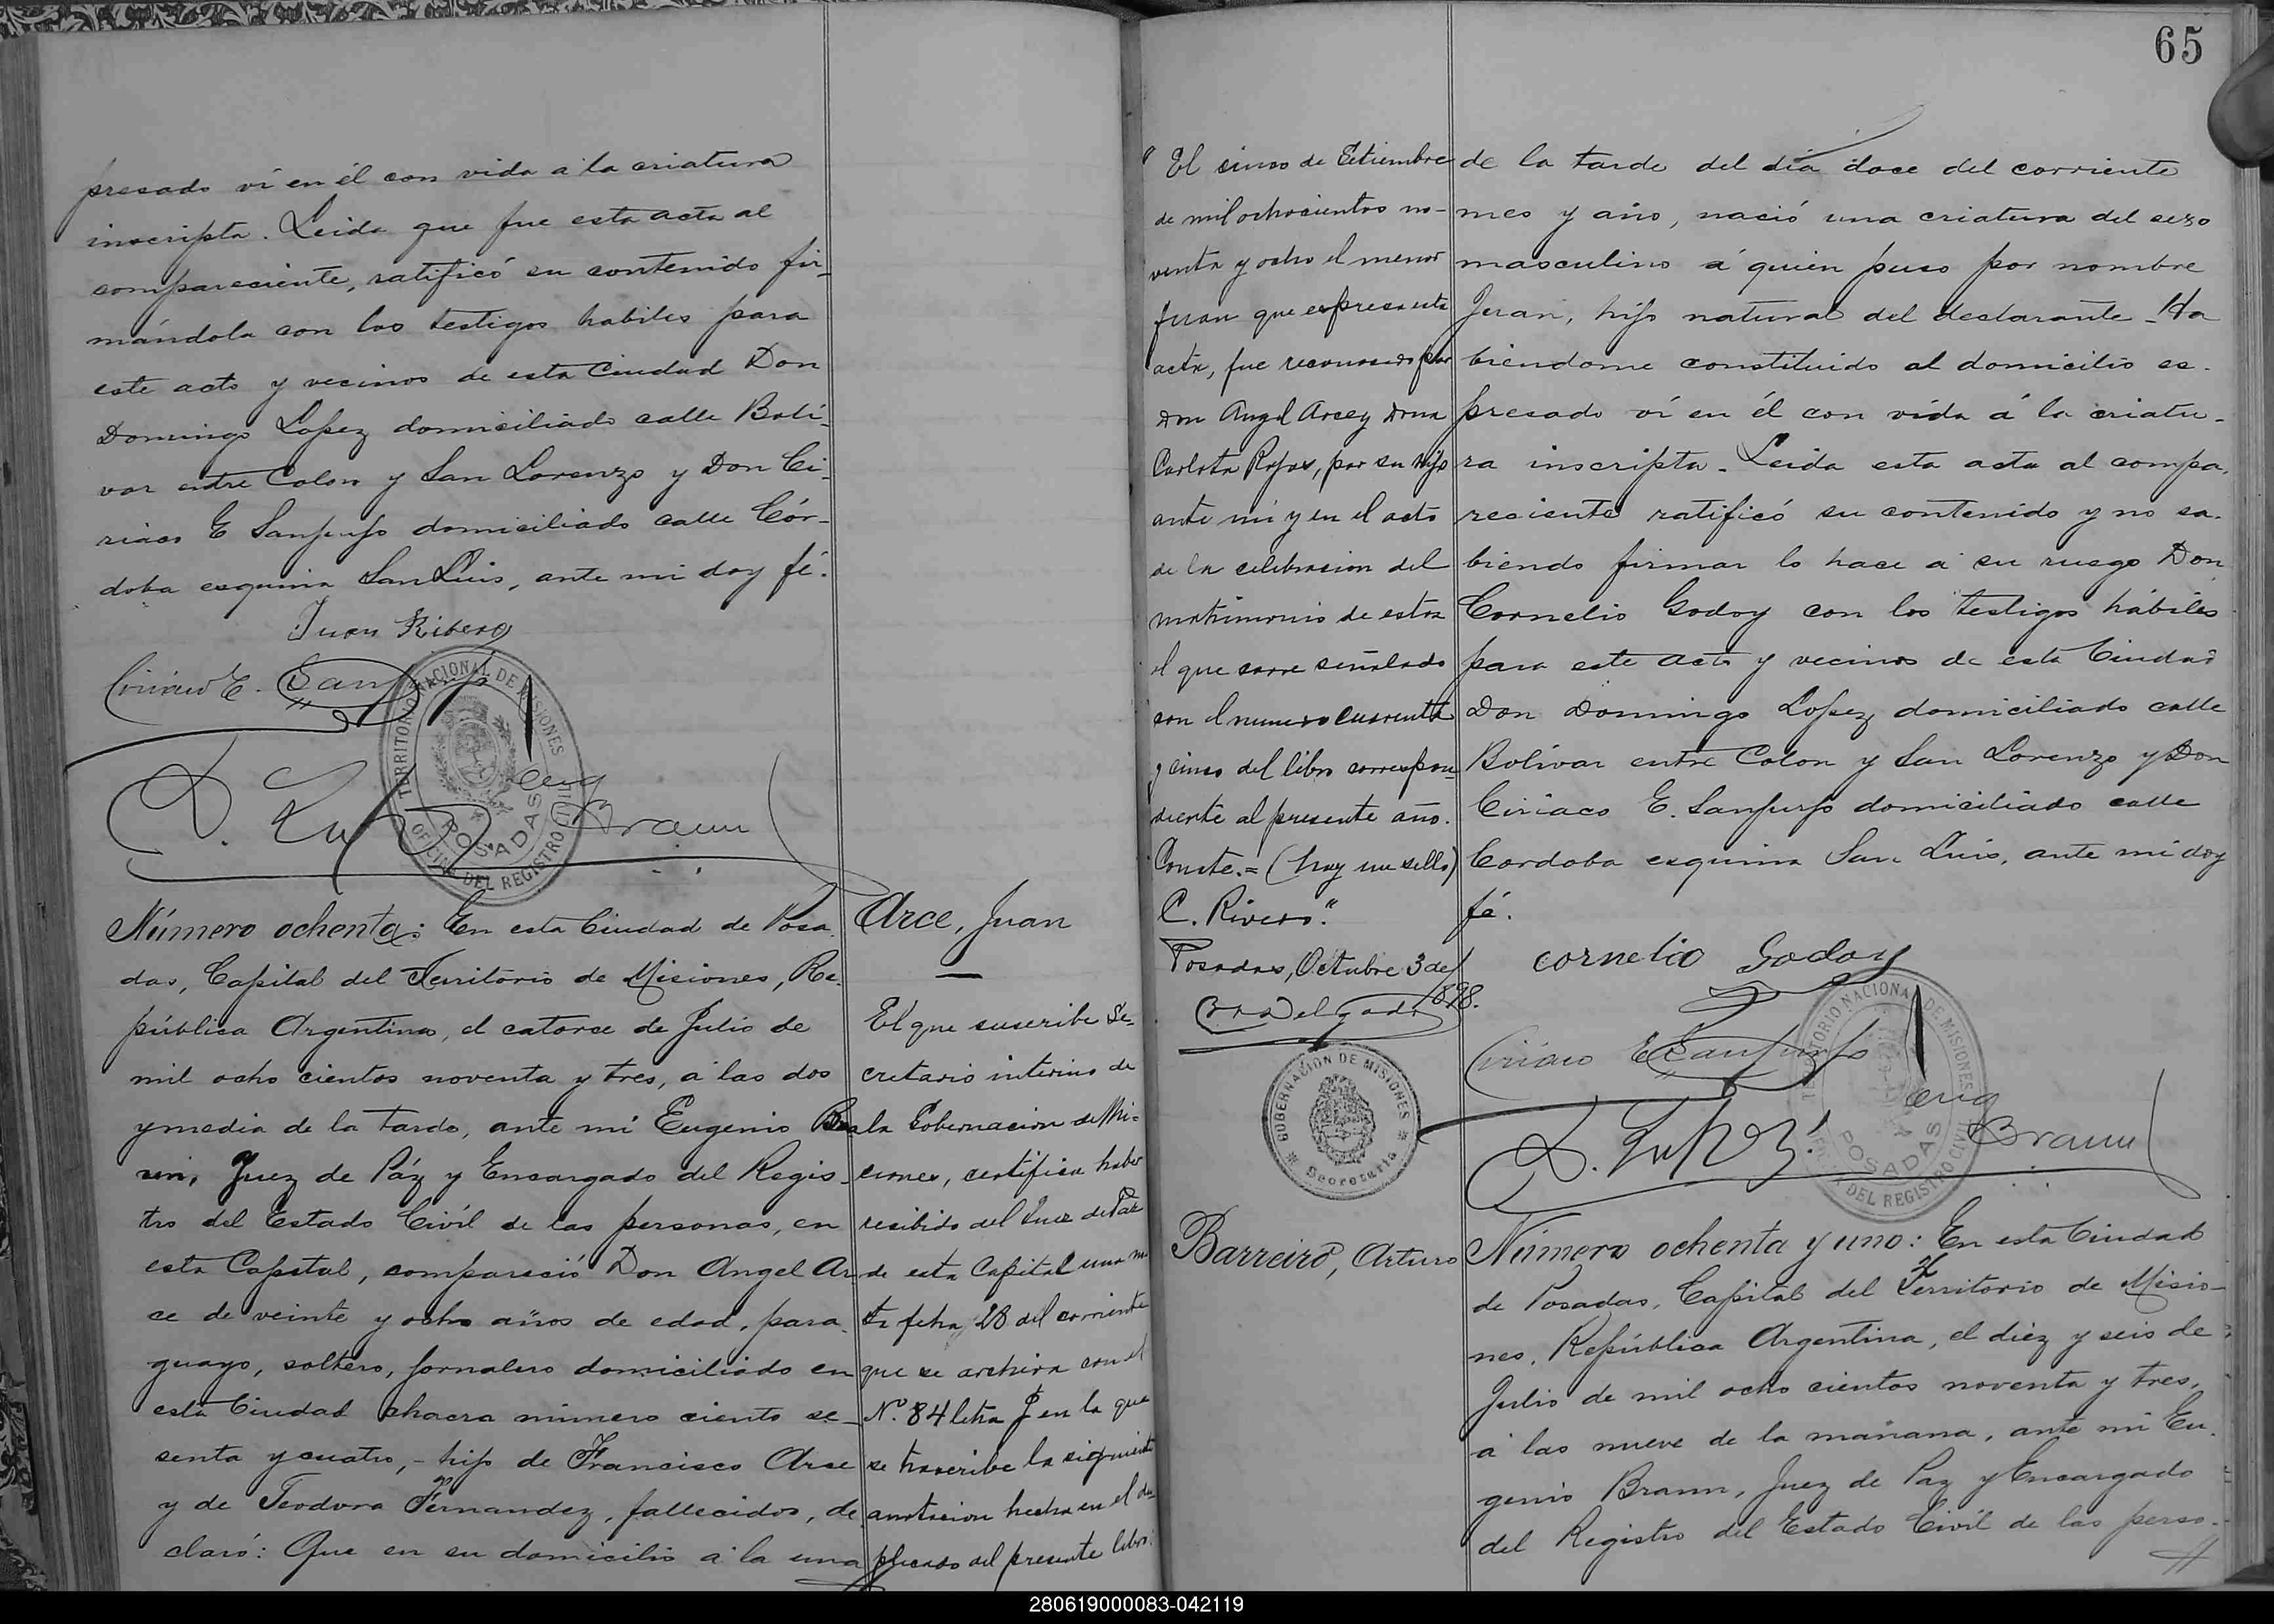 presado ví en él con vida á la criatura
inscripta. Leida que fue esta acta al
compareciente, ratificó su contenido fir-
mándola con los testigos habiles para
este acto y vecinos de esta Ciudad Don
Domingo Lopez domiciliado calle Bolí-
var entre Colon y San Lorenzo y Don Ci-
riaco E Sanjurjo domiciliado calle Cór-
doba esquina San Luis, ante mi doy fé.
Juan Ribero
Ciriaco E. Sanjurjo
TERRITORIO NACIONAL DE MISIONES
POSADAS
OFICINA DEL REGISTRO CIVIL
D. Lopez
Eug Braun
Número ochenta: En esta Ciudad de Posa-
das, Capital del Territorio de Misiones, Re-
pública Argentina, el catorce de Julio de
mil ocho cientos noventa y tres, á las dos
y media de la tarde, ante mi Eugenio Bra
un, Juez de Páz y Encargado del Regis-
tro del Estado Civíl de las personas, en
esta Capital, compareció Don Angel Ar-
ce de veinte y ocho años de edad, para-
guayo, soltero, jornalero domiciliado en
esta Ciudad chacra número ciento se-
senta y cuatro, - hijo de Francisco Arce
y de Teodora Fernandez, fallecidos, de-
claró: Que en su domicilio á la una
Arce, Juan
El que suscribe Se-
cretario interino de
la Gobernacion de Mi-
ciones, certifica haber
recibido del Juez de Paz
de esta Capital una no
ta fcha 28 del corriente
que se archiva con el
Nº. 84 letra J en la que
se trascribe la siguiente
anotacion hecha en el du-
plicado del presente libro:
65
"El cinco de Setiembre
de mil ochocientos no-
venta y ocho el menor
Juan que espresa esta
acta, fue reconocido por
Don Angel Arce y Doña
Carlota Rojas, por su hijo
ante mi y en el acto
de la celebracion del
matrimonio de estos
el que corre señalado
con el numero cuarenta
y cinco del libro correspon-
diente al presente año.
Conste.= (hay un sello)
C. Rivero".
Posadas, Octubre 3 de/
1898.
GOBERNACION DE MISIONES
Secretaria
Barreiro, Arturo
de la tarde del día doce del corriente
mes y año, nació una criatura del sexo
masculino á quien puso por nombre
Juan, hijo natural del declarante - Ha
biendome constituido al domicilio es-
presado ví en él con vida á la criatu-
ra inscripta. Leida esta acta al compa-
reciente ratificó su contenido y no sa-
biendo firmar lo hace á su ruego Don
Cornelio Godoy con los testigos hábiles
para este acto y vecinos de esta Ciudad
Don Domingo Lopez domiciliado calle
Bolívar entre Colon y San Lorenzo y Don
Ciriaco E. Sanjurjo domiciliado calle
Cordoba esquina San Luis, ante mi doy
fé.
cornelio Godoy
Ciriaco E Sanjurjo
TERRITORIO NACIONAL DE MISIONES
POSADAS
OFICINA DEL REGISTRO CIVIL
D. Lopez
Eug Braun
Número ochenta y uno: En esta Ciudad
de Posadas, Capital del Territorio de Misio-
nes, República Argentina, el diez y seis de
Julio de mil ocho cientos noventa y tres,
á las nueve de la mañana, ante mi Eu-
genio Braun, Juez de Paz y Encargado
del Registro del Estado Civíl de las perso-
280619000083-042119